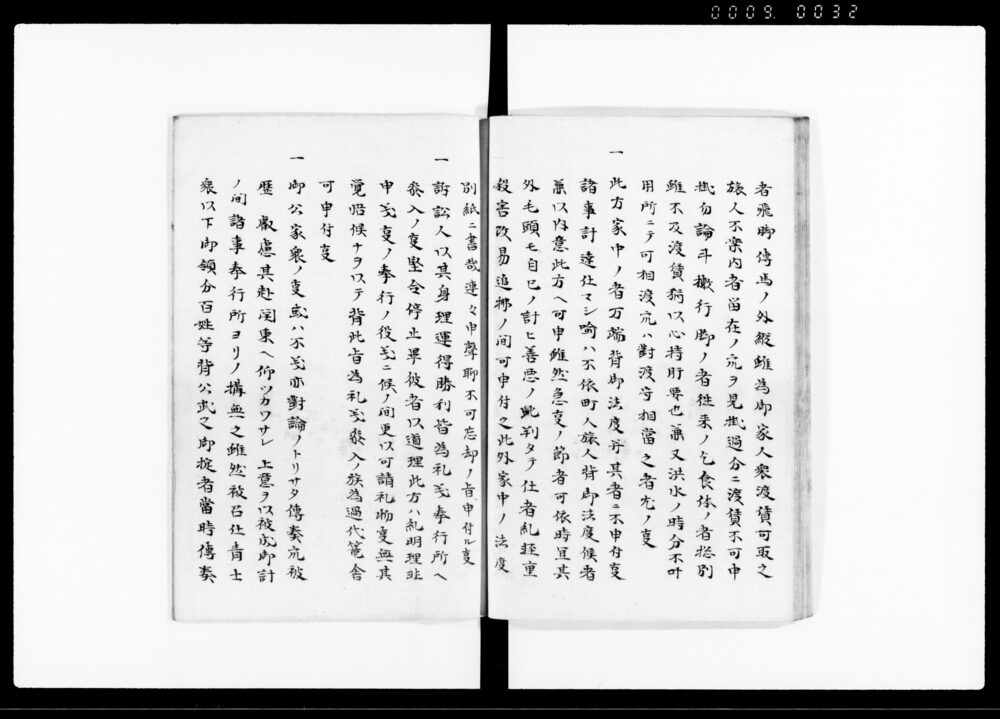 0009. 0032
者飛脚傳馬ノ外縦雖為御家人衆渡賃可取之
旅人不案内者留在ノ亢ヲ見掛過分ニ渡賃不可申
掛勿論斗擻行脚ノ者徃来ノ乞食体ノ者捴別
雖不及渡賃猶以心持肝要也兼又洪水ノ時分不叶
用所ニテ可相渡亢ハ對渡守相當之者尤ノ叓
一 此方家中ノ者万端背御法度并其者ニ不申付叓
諸事計違仕マシ喩ハ不依町人旅人背御法度候者
兼以内意此方ヘ可申雖然急叓ノ節者可依時宜其
外毛頭モ自己ノ計ヒ善悪ノ批判タテ仕者糺軽重
殺害改易追拂ノ間可申付之此外家中ノ法度
別紙ニ書哉連々申聲聊不可忘却ノ旨申付ル叓
一 訴訟人以其身理運得勝利皆為礼㦮奉行所ヘ
㐮入ノ叓堅令停止畢彼者以道理此方ハ糺明理非
申㦮叓ノ奉行ノ役㦮ニ候ノ間更以可請礼物叓無其
覚悟候ナヲ以テ背此旨為礼㦮㐮入ノ族為過代篭舎
可申付叓
一 御公家衆ノ叓或ハ不㦮亦對論ノトリサタ傳奏亢被
歴 叡慮其赴関東ヘ仰ツカワサレ 上意ヲ以被成御計
ノ間諸事奉行所ヨリノ搆無之雖然被召仕青士
衆以下御領分百姓等背公武之御掟者當時傳奏